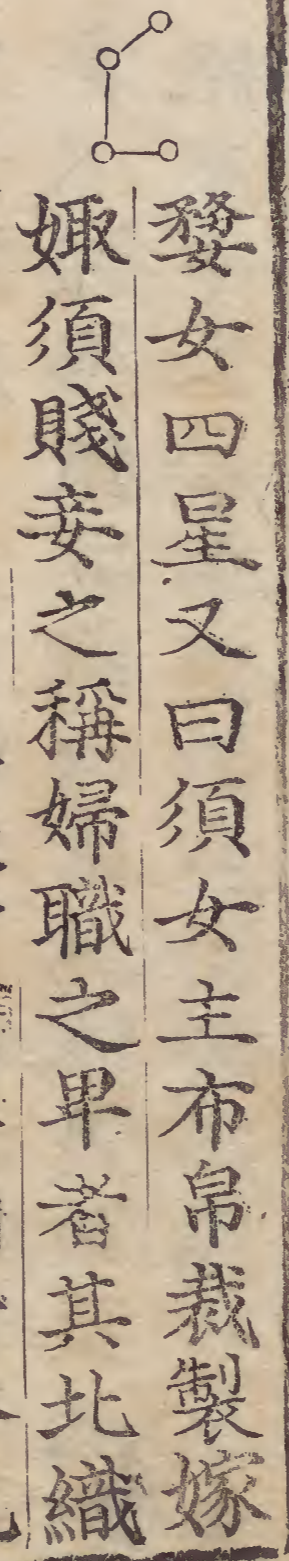 婺女四星又曰須女主布帛裁製嫁
娵須賤妾之稱婦職之卑者其北織